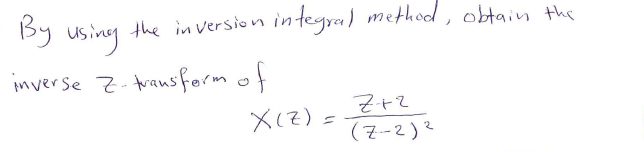 By using the inversion integral method, obtain the
inverse Z-transform of
X(Z) = Z+2 / (Z-2)²